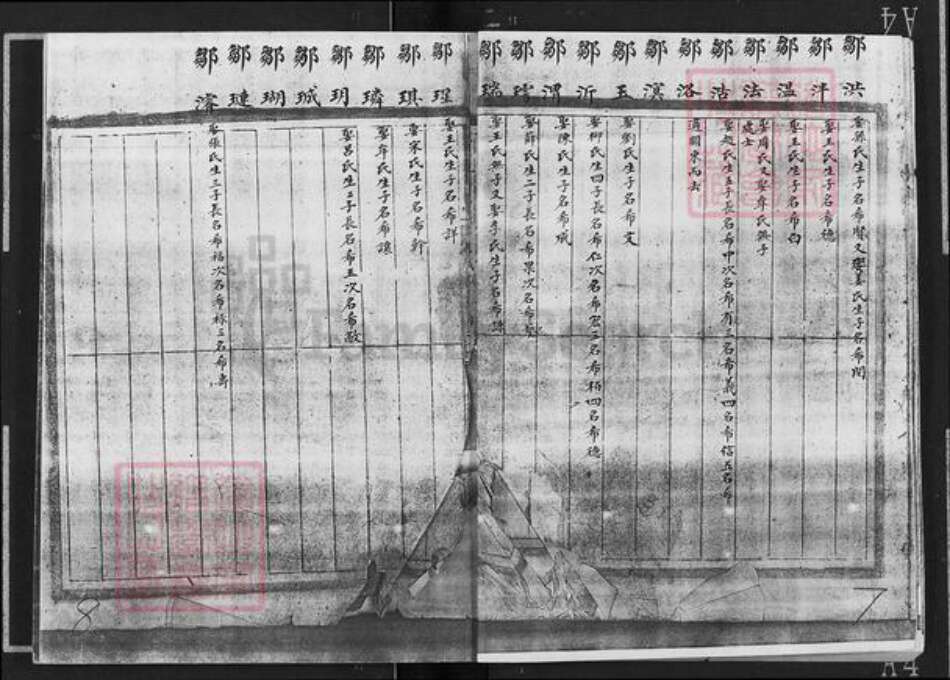 A4
鄒洪
娶孫氏生子名希賢又娶姜氏生子名希閔
鄒泮
娶王氏生子名希德
鄒温
娶王氏生子名希白
鄒法
娶周氏又娶牟氏無子
處士
鄒浩
娶趙氏生五子長名希中次名希有三名希義四名希信五名希
鄒洛
鄒濱
鄒玉
娶劉氏生子名希文
鄒沂
娶柳氏生四子長名希仁次名希宏三名希栢四名希德
鄒渭
娶陳氏生子名希成
鄒
娶薛氏生二子長名希果次名希
鄒瑞
娶王氏無子又娶李氏生子名希
鄒理
娶王氏生子名希詳
鄒琪
娶宋氏生子名希幹
鄒璘
娶牟氏生子名希讓
鄒玥
娶呂氏生二子長名希孟次名希敬
鄒珹
鄒瑚
鄒璉
鄒濬
娶張氏生三子長名希福次名希祿三名希壽
8
7
A4